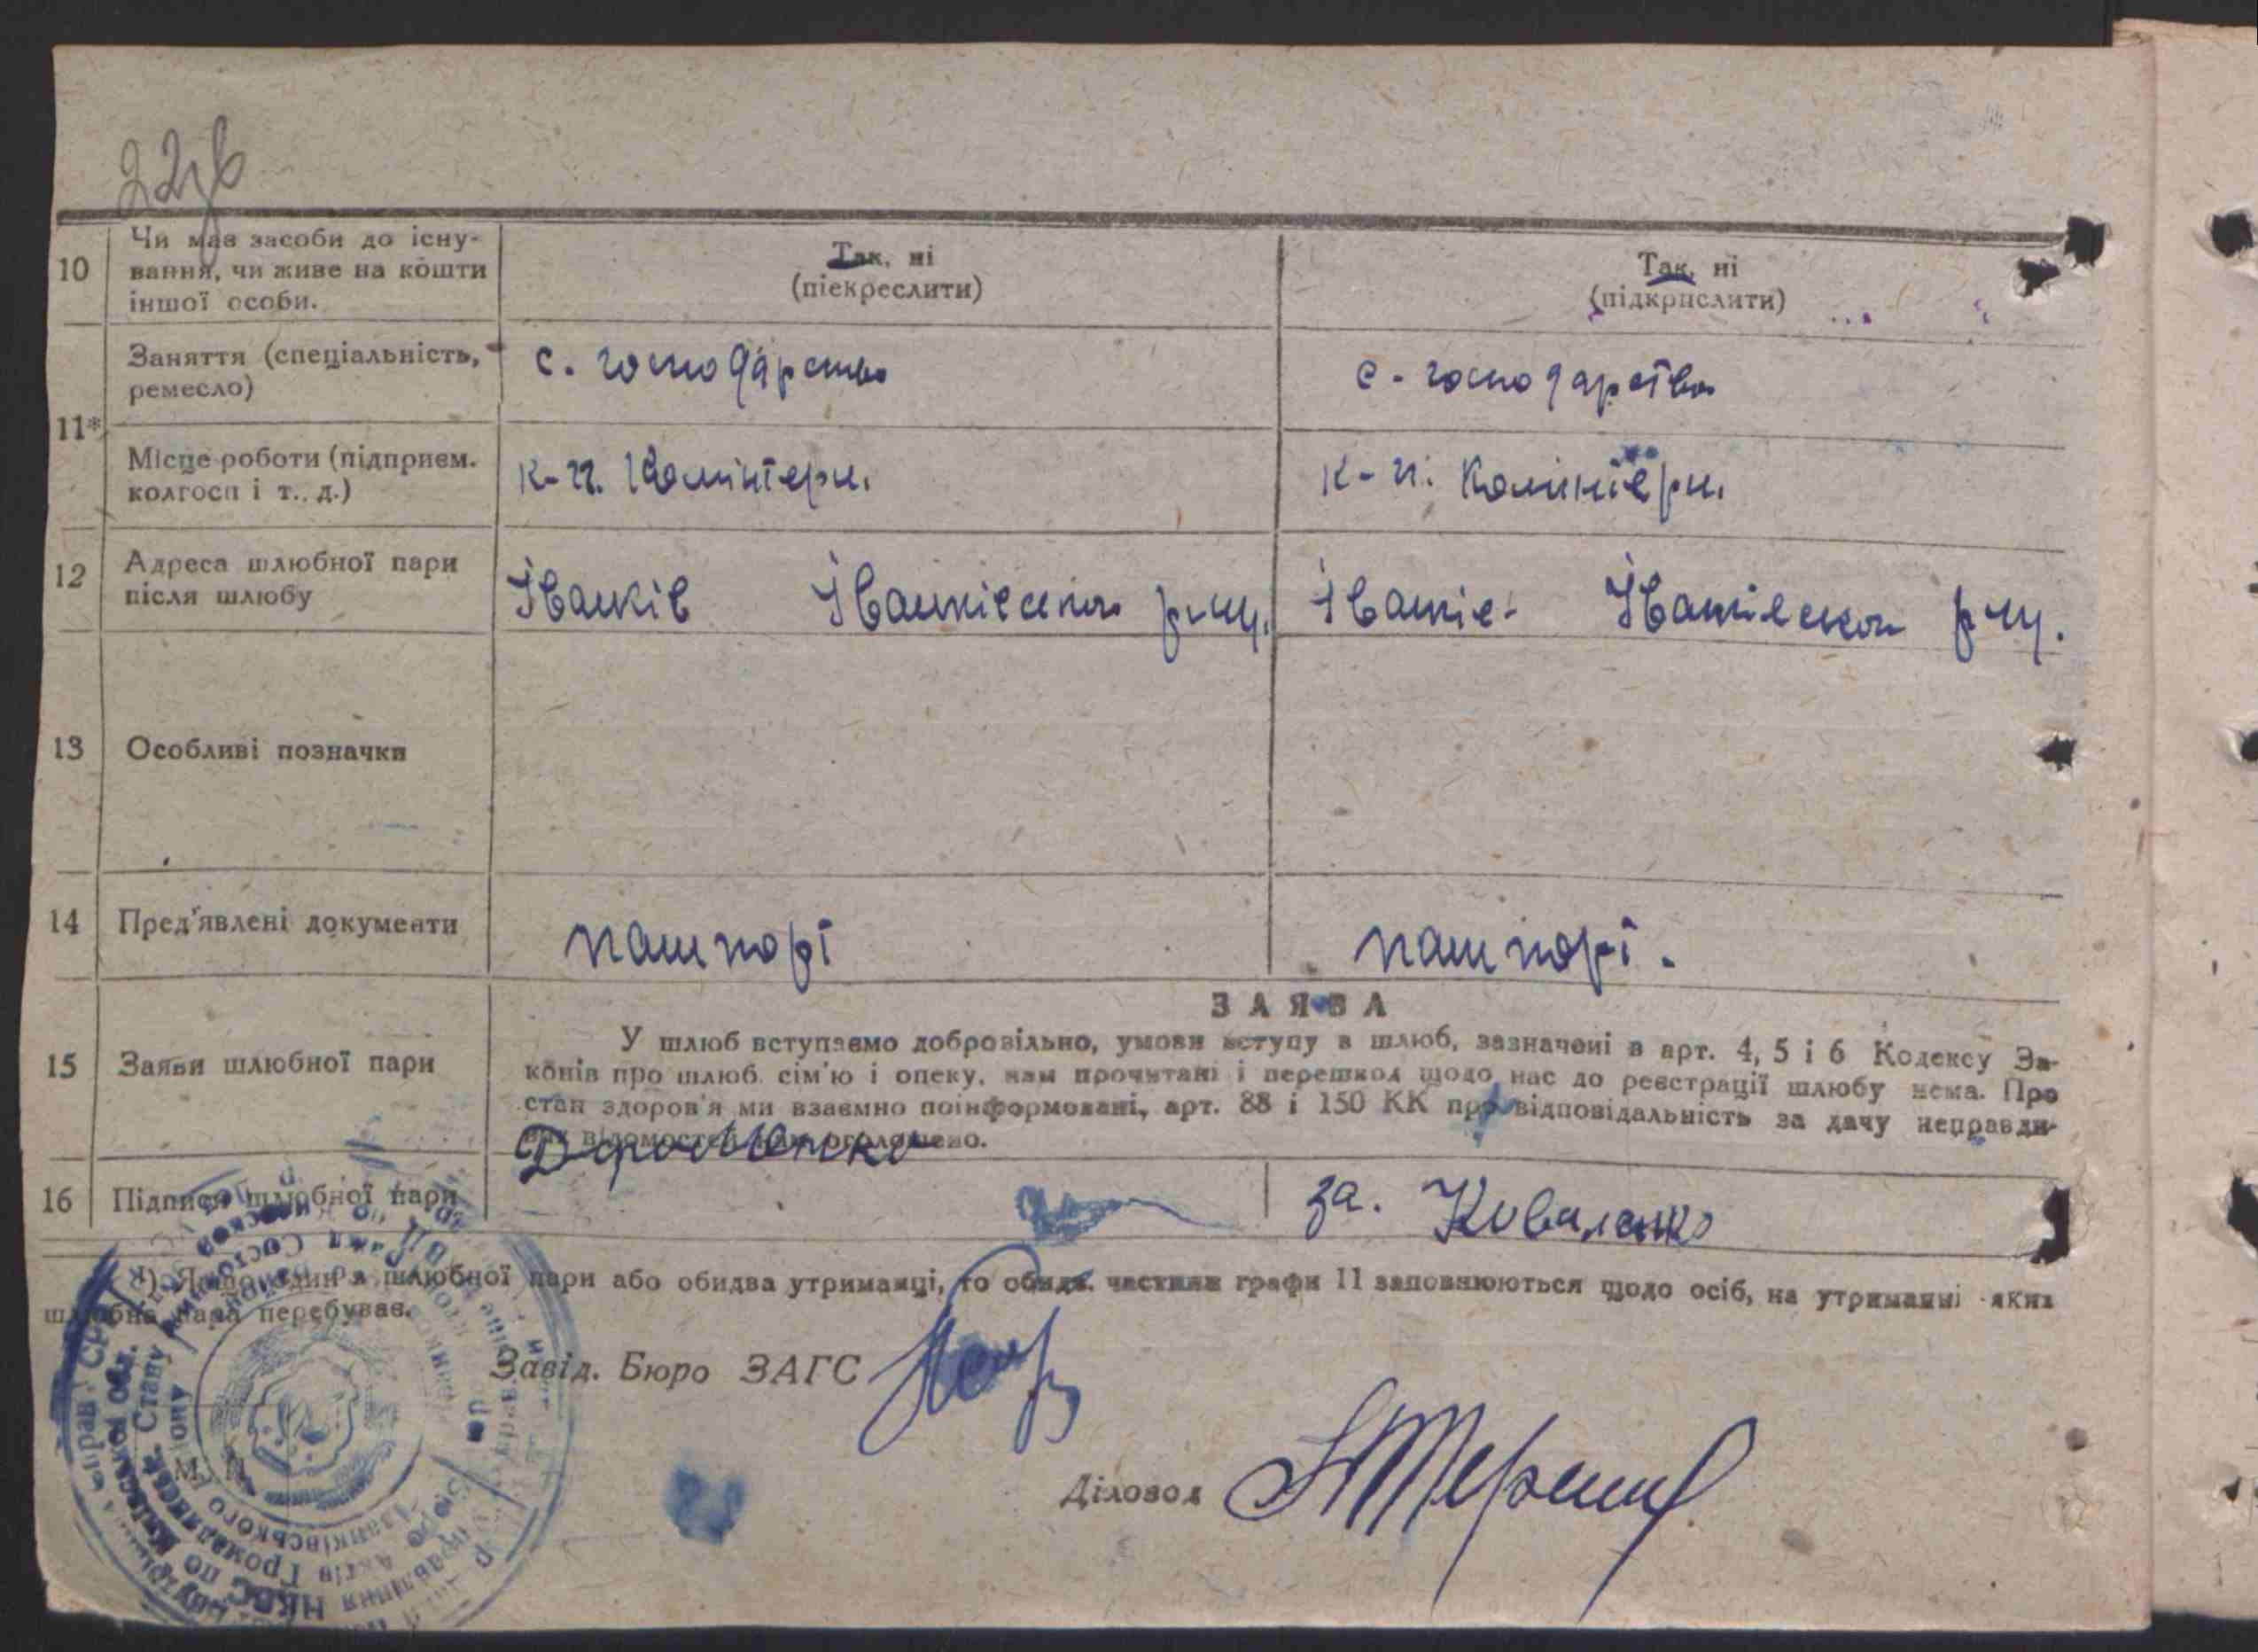 10 Чи має засоби до існу-
вання, чи живе на кошти
іншої особи.
Так, ні
(піекреслити)
Так, ні
(підкрислити)
11*
Заняття (спеціальність,
ремесло)
с. господарство
с - господарство
Місце роботи (підприєм.
колгосп і т., д.)
к-п. Комінтерн.
к-п. Комінтерн.
12 Адреса шлюбної пари
після шлюбу
Іванків Іванківська р-ну.
Іванків- Іванківська р-ну.
13 Особливі позначки
14 Пред'явлені документи
пашпорт
пашпорт.
15 Заяви шлюбної пари
ЗАЯВА
У шлюб вступаємо добровільно, умови вступу в шлюб, зазначені в арт. 4, 5 і 6 Кодексу За-
конів про шлюб, сім'ю і опеку, нам прочитані і перешкод щодо нас до реєстрації шлюбу нема. Про
стан здоров'я ми взаємно поінформовані, арт. 88 і 150 КК про відповідальність за дачу неправди-
вих відомостей нам оголошено.
16 Підписи шлюбної пари
за. Коваленко
*) Якщо один з шлюбної пари або обидва утриманці, то обидві частини графи 11 заповнюються щодо осіб, на утриманні яких
шлюбна пара перебуває.
Завід. Бюро ЗАГС
Діловод
М. П.